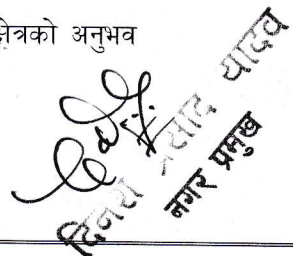 क्षेत्रको अनुभव
प्रसाद यादव
नगर प्रमुख